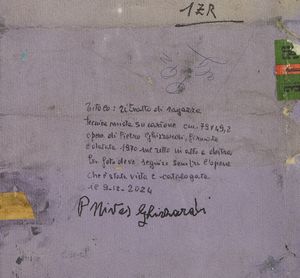 1ZR
Titolo: Ritratto di ragazza
tecnica mista su cartone cm. 79x49,2
opera di Pietro Ghizzardi, firmato
e datato 1970 sul retto in alto a destra
La foto deve seguire sempre l'opera
che è stata vista e catalogata
il 9-12-2024
P Nives Ghizzardi